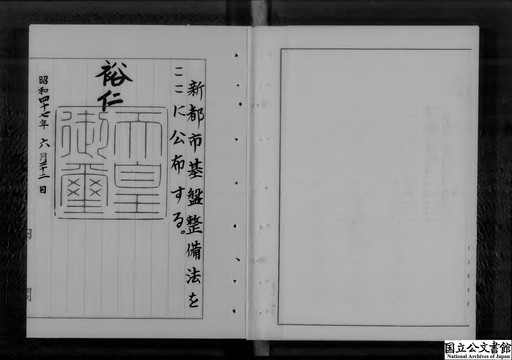 新都市基盤整備法を
ここに公布する。
裕仁
天皇
御璽
昭和四十七年 六月二十二日
国立公文書館
National Archives of Japan